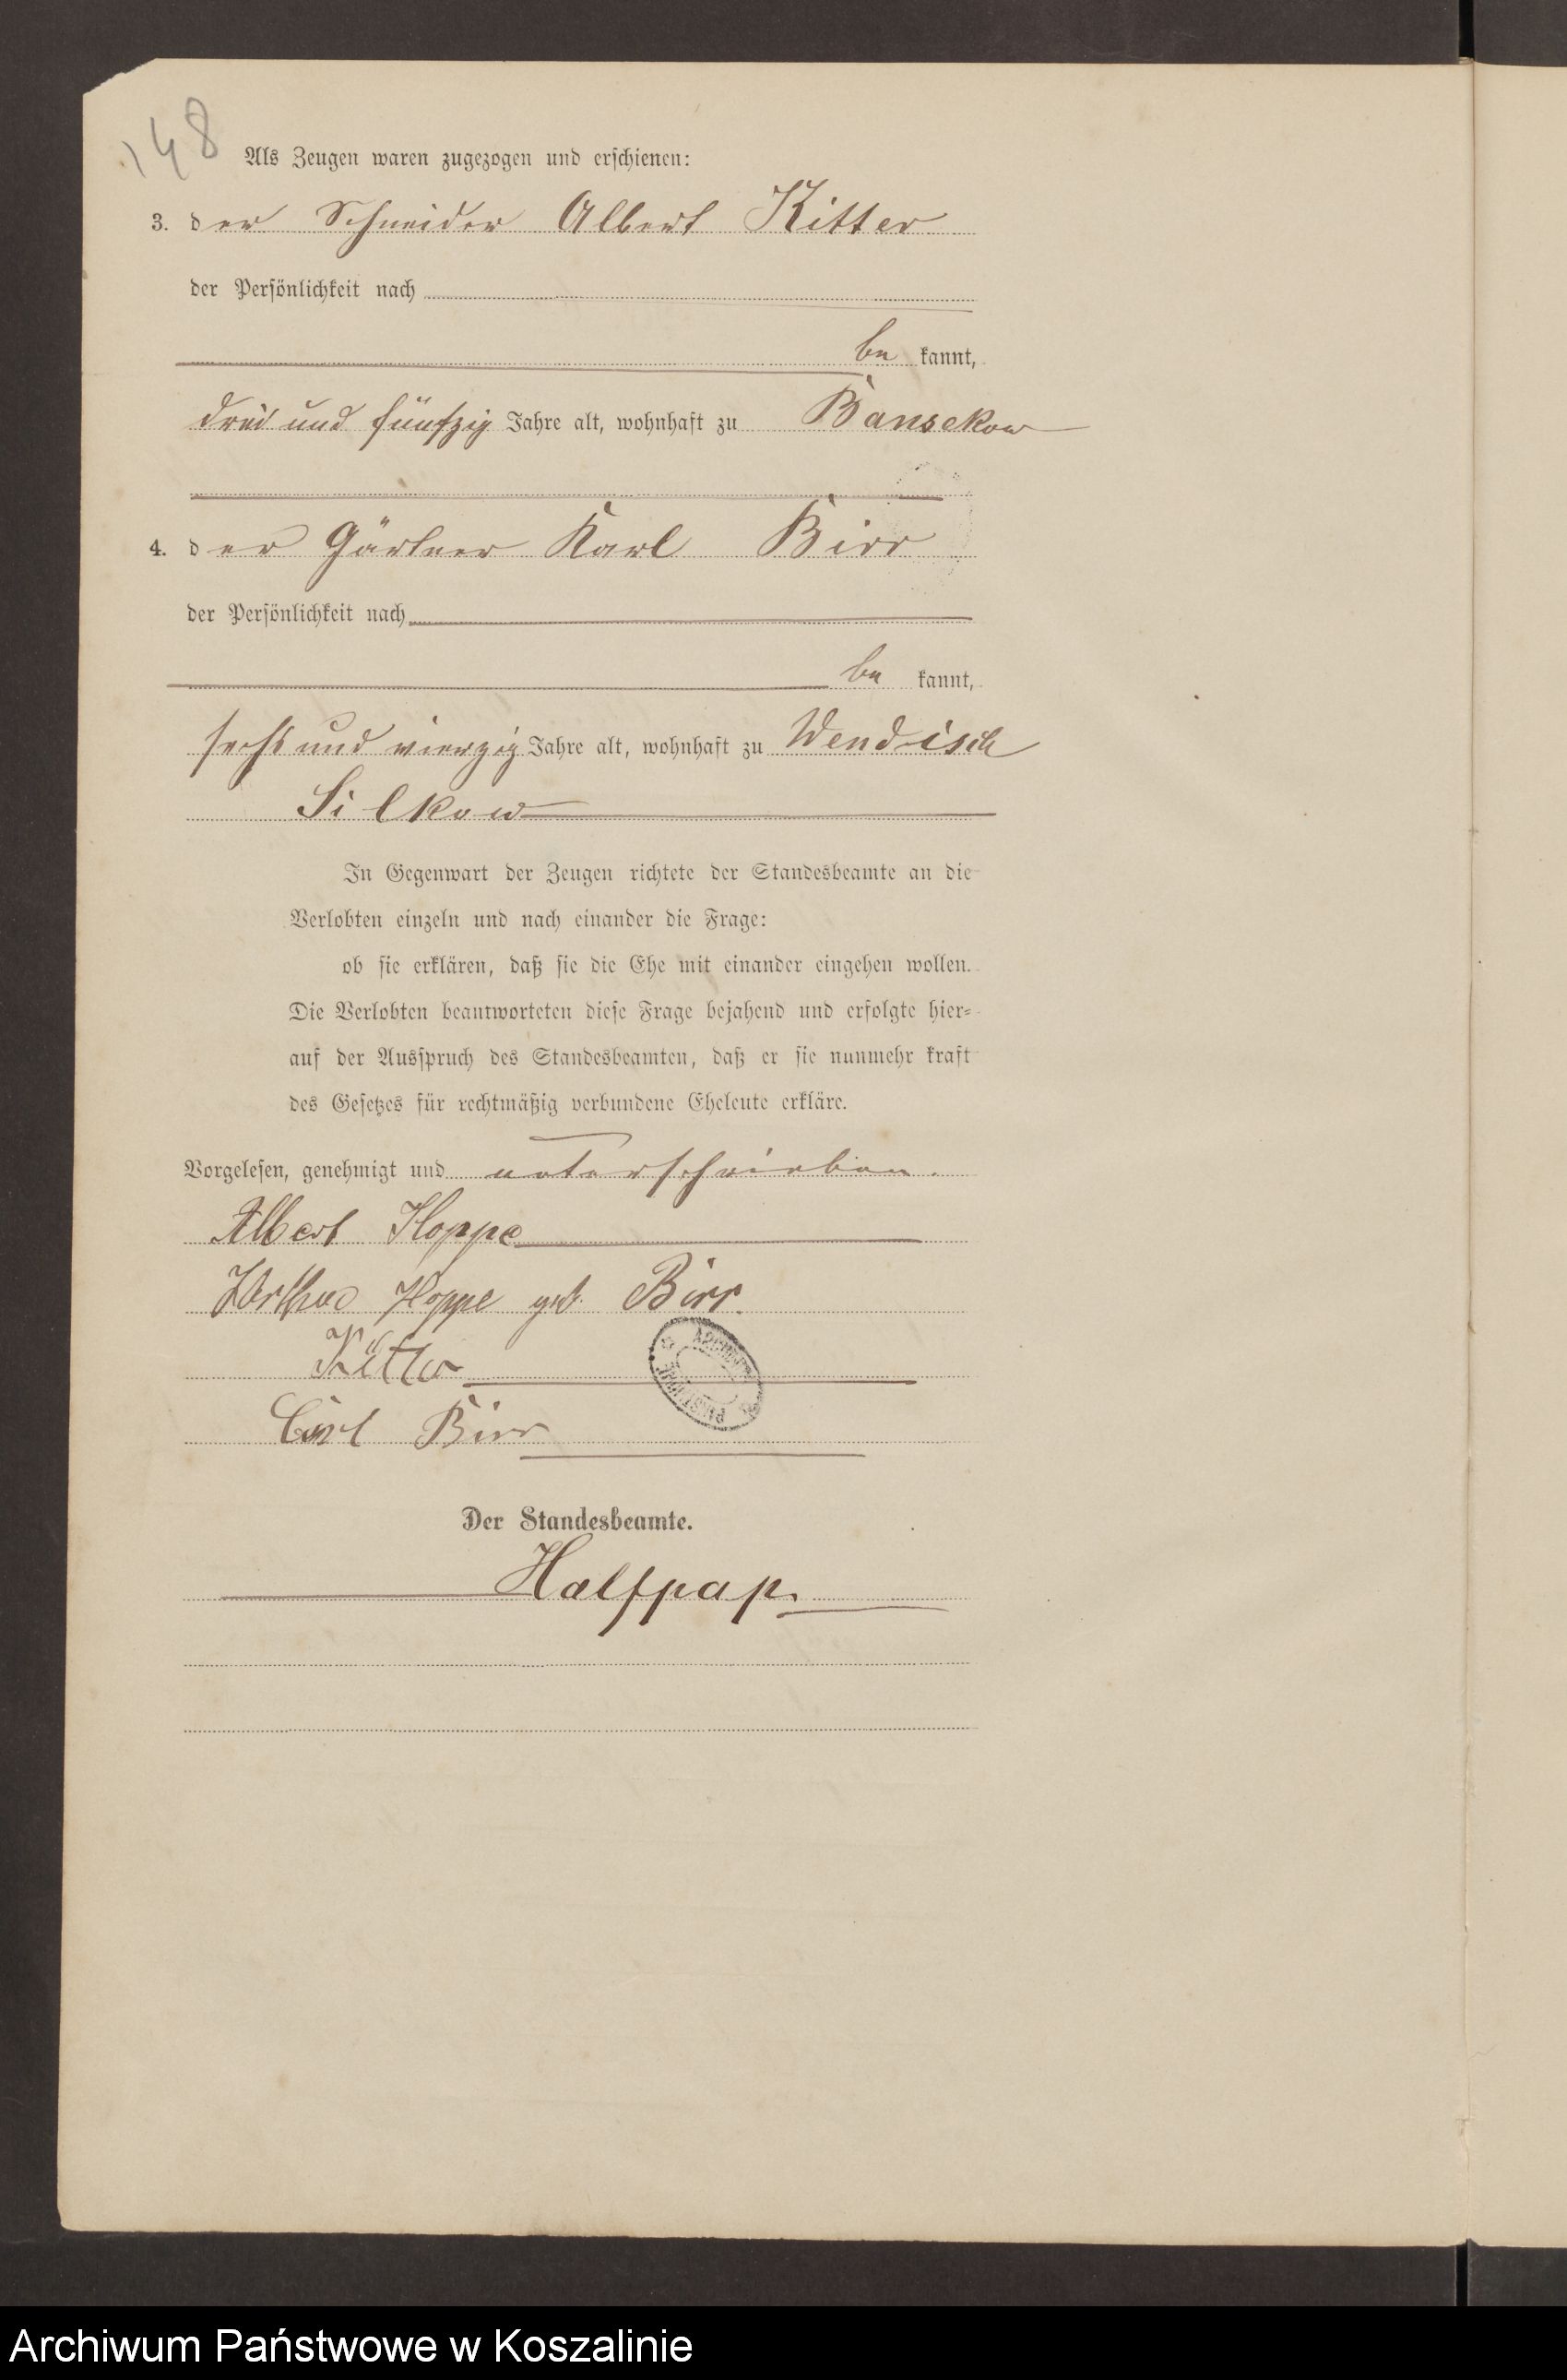 148
Als Zeugen waren zugezogen und erschienen:
3. der Schneider Albert Kitter
der Persönlichkeit nach
be kannt,
drei und fünfzig Jahre alt, wohnhaft zu Bansekow
4. der Gärtner Karl Birr
der Persönlichkeit nach
be kannt,
sechs und vierzig Jahre alt, wohnhaft zu Wendisch
Silkow
In Gegenwart der Zeugen richtete der Standesbeamte an die
Verlobten einzeln und nach einander die Frage:
ob sie erklären, daß sie die Ehe mit einander eingehen wollen.
Die Verlobten beantworteten diese Frage bejahend und erfolgte hier-
auf der Ausspruch des Standesbeamten, daß er sie nunmehr kraft
des Gesetzes für rechtmäßig verbundene Eheleute erkläre.
Vorgelesen, genehmigt und unterschrieben.
Albert Hoppe
Hoppe geb. Birr.
Kitter
Carl Birr
Der Standesbeamte.
Halfpap.
Archiwum Państwowe w Koszalinie